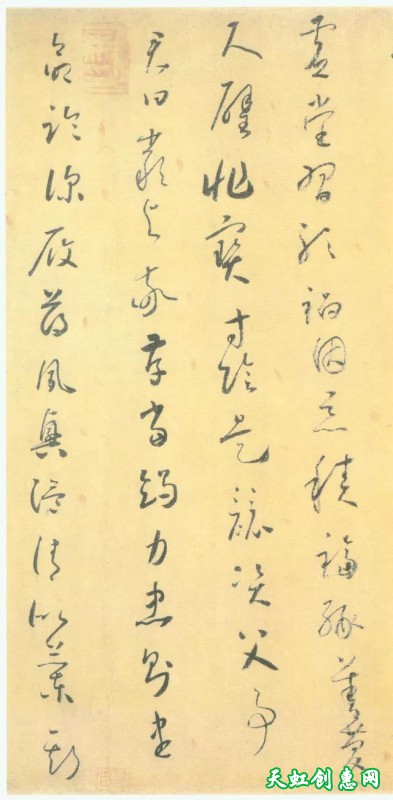 虛堂習聽禍因惡積福緣善慶
尺璧非寶寸陰是競資父事
君曰嚴與敬孝當竭力忠則盡
命臨深履薄夙興溫凊似蘭斯
天虹创意网